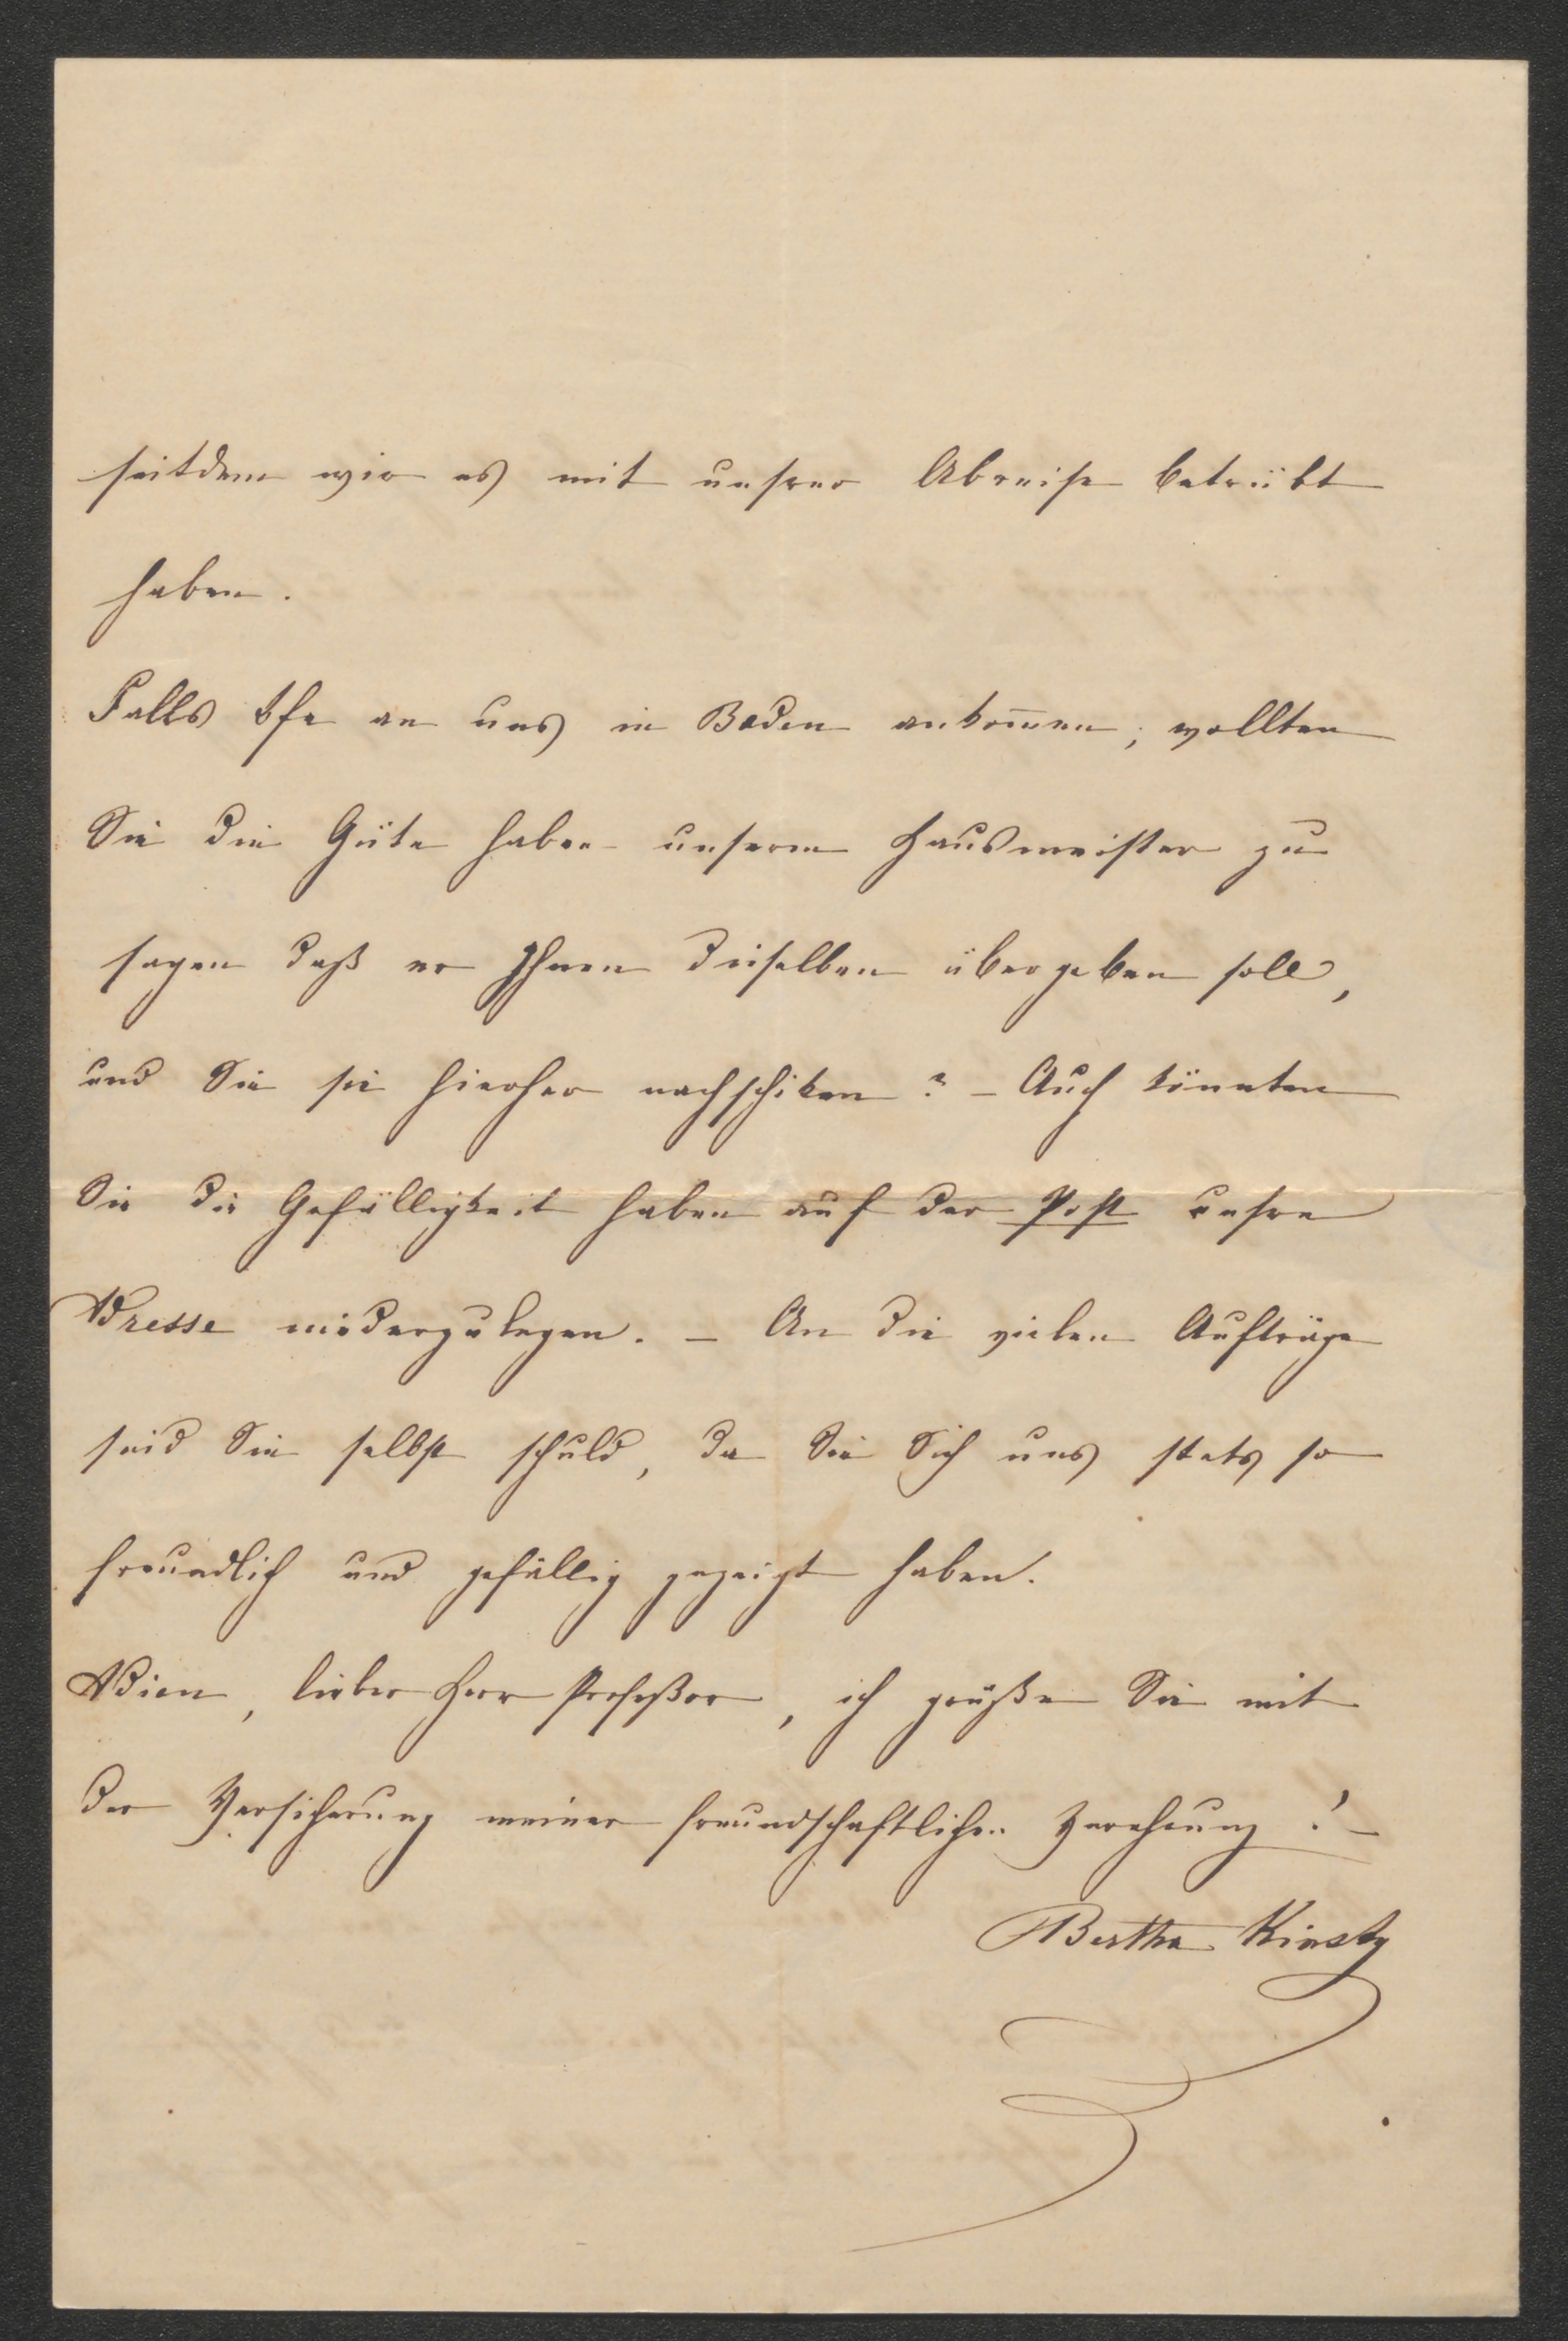 seitdem wir es mit unsrer Abreise betrübt
haben.
Falls Bfe an uns in Baden ankom̄en, wollten
Sie die Güte haben unserem Hausmeister zu
sagen daß er Ihnen dieselben übergeben soll,
und Sie sie hierher nachschiken? – Auch könnten
Sie die Gefälligkeit haben auf der Post unsre
Adresse niederzulegen. – An die vielen Aufträge
seid Sie selbst schuld, da Sie Sich uns stets so
freundlich und gefällig gezeigt haben.
Adieu, lieber Herr Profeßor, ich grüße Sie mit
der Versicherung meiner freundschaftlichen Verehrung! –
Bertha Kinsky